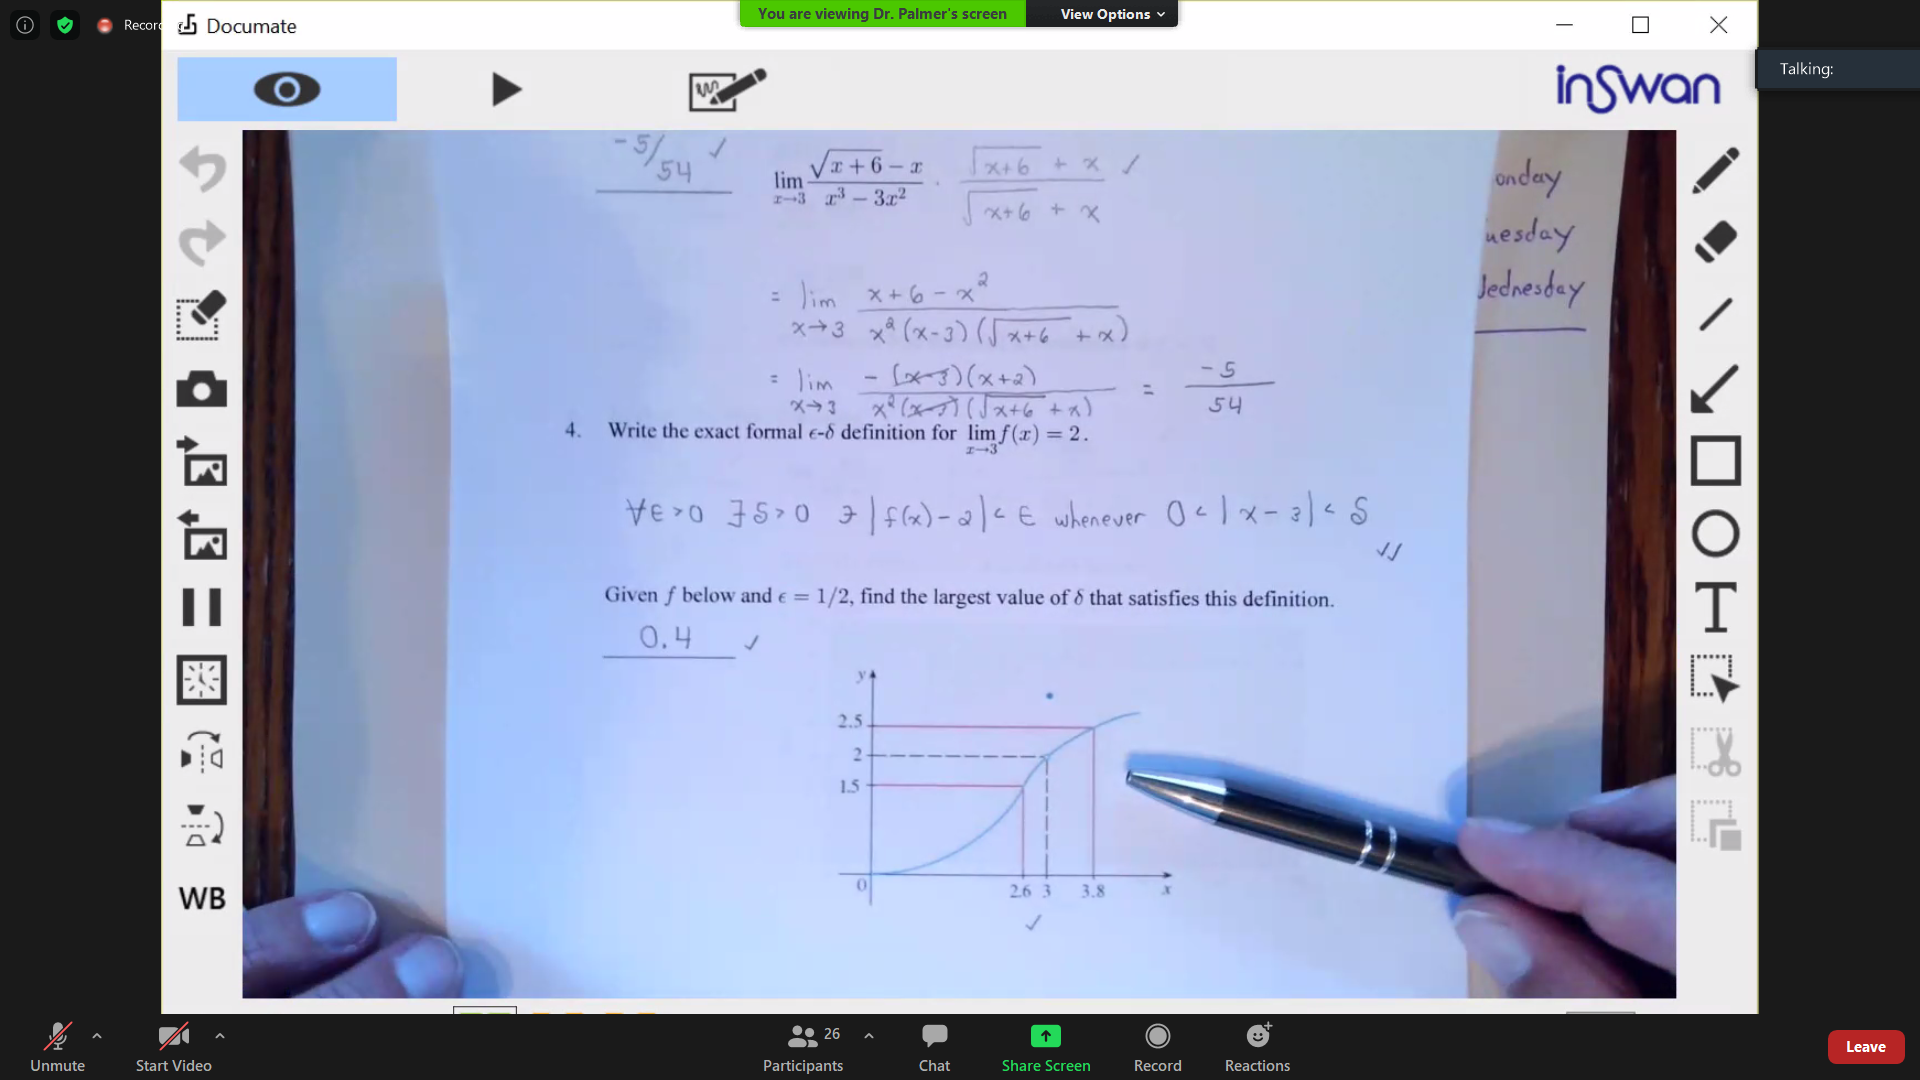 Recor
Documate
You are viewing Dr. Palmer's screen
View Options
Talking:
inSwan
-5/54 ✓
lim x→3 (√(x+6) − x)/(x³ − 3x²) · (√(x+6) + x)/(√(x+6) + x) ✓
= lim x→3 (x+6−x²)/(x²(x-3)(√(x+6) + x))
= lim x→3 (−(x-3)(x+2))/(x²(x-3)(√(x+6) + x)) = -5/54
4. Write the exact formal ϵ-δ definition for lim x→3 f(x) = 2.
∀ϵ>0 ∃δ>0 ∍ |f(x)-2|<ϵ whenever 0<|x-3|<δ
✓✓
Given f below and ϵ = 1/2, find the largest value of δ that satisfies this definition.
0.4 ✓
y
2.5
2
1.5
0
2.6 3 3.8 x
✓
onday
uesday
Wednesday
T
WB
Unmute
Start Video
26
Participants
Chat
Share Screen
Record
Reactions
Leave